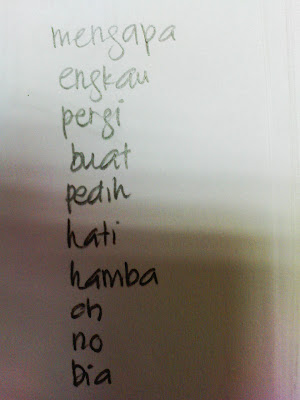 mengapa
engkau
pergi
buat
pedih
hati
hamba
oh
no
bia